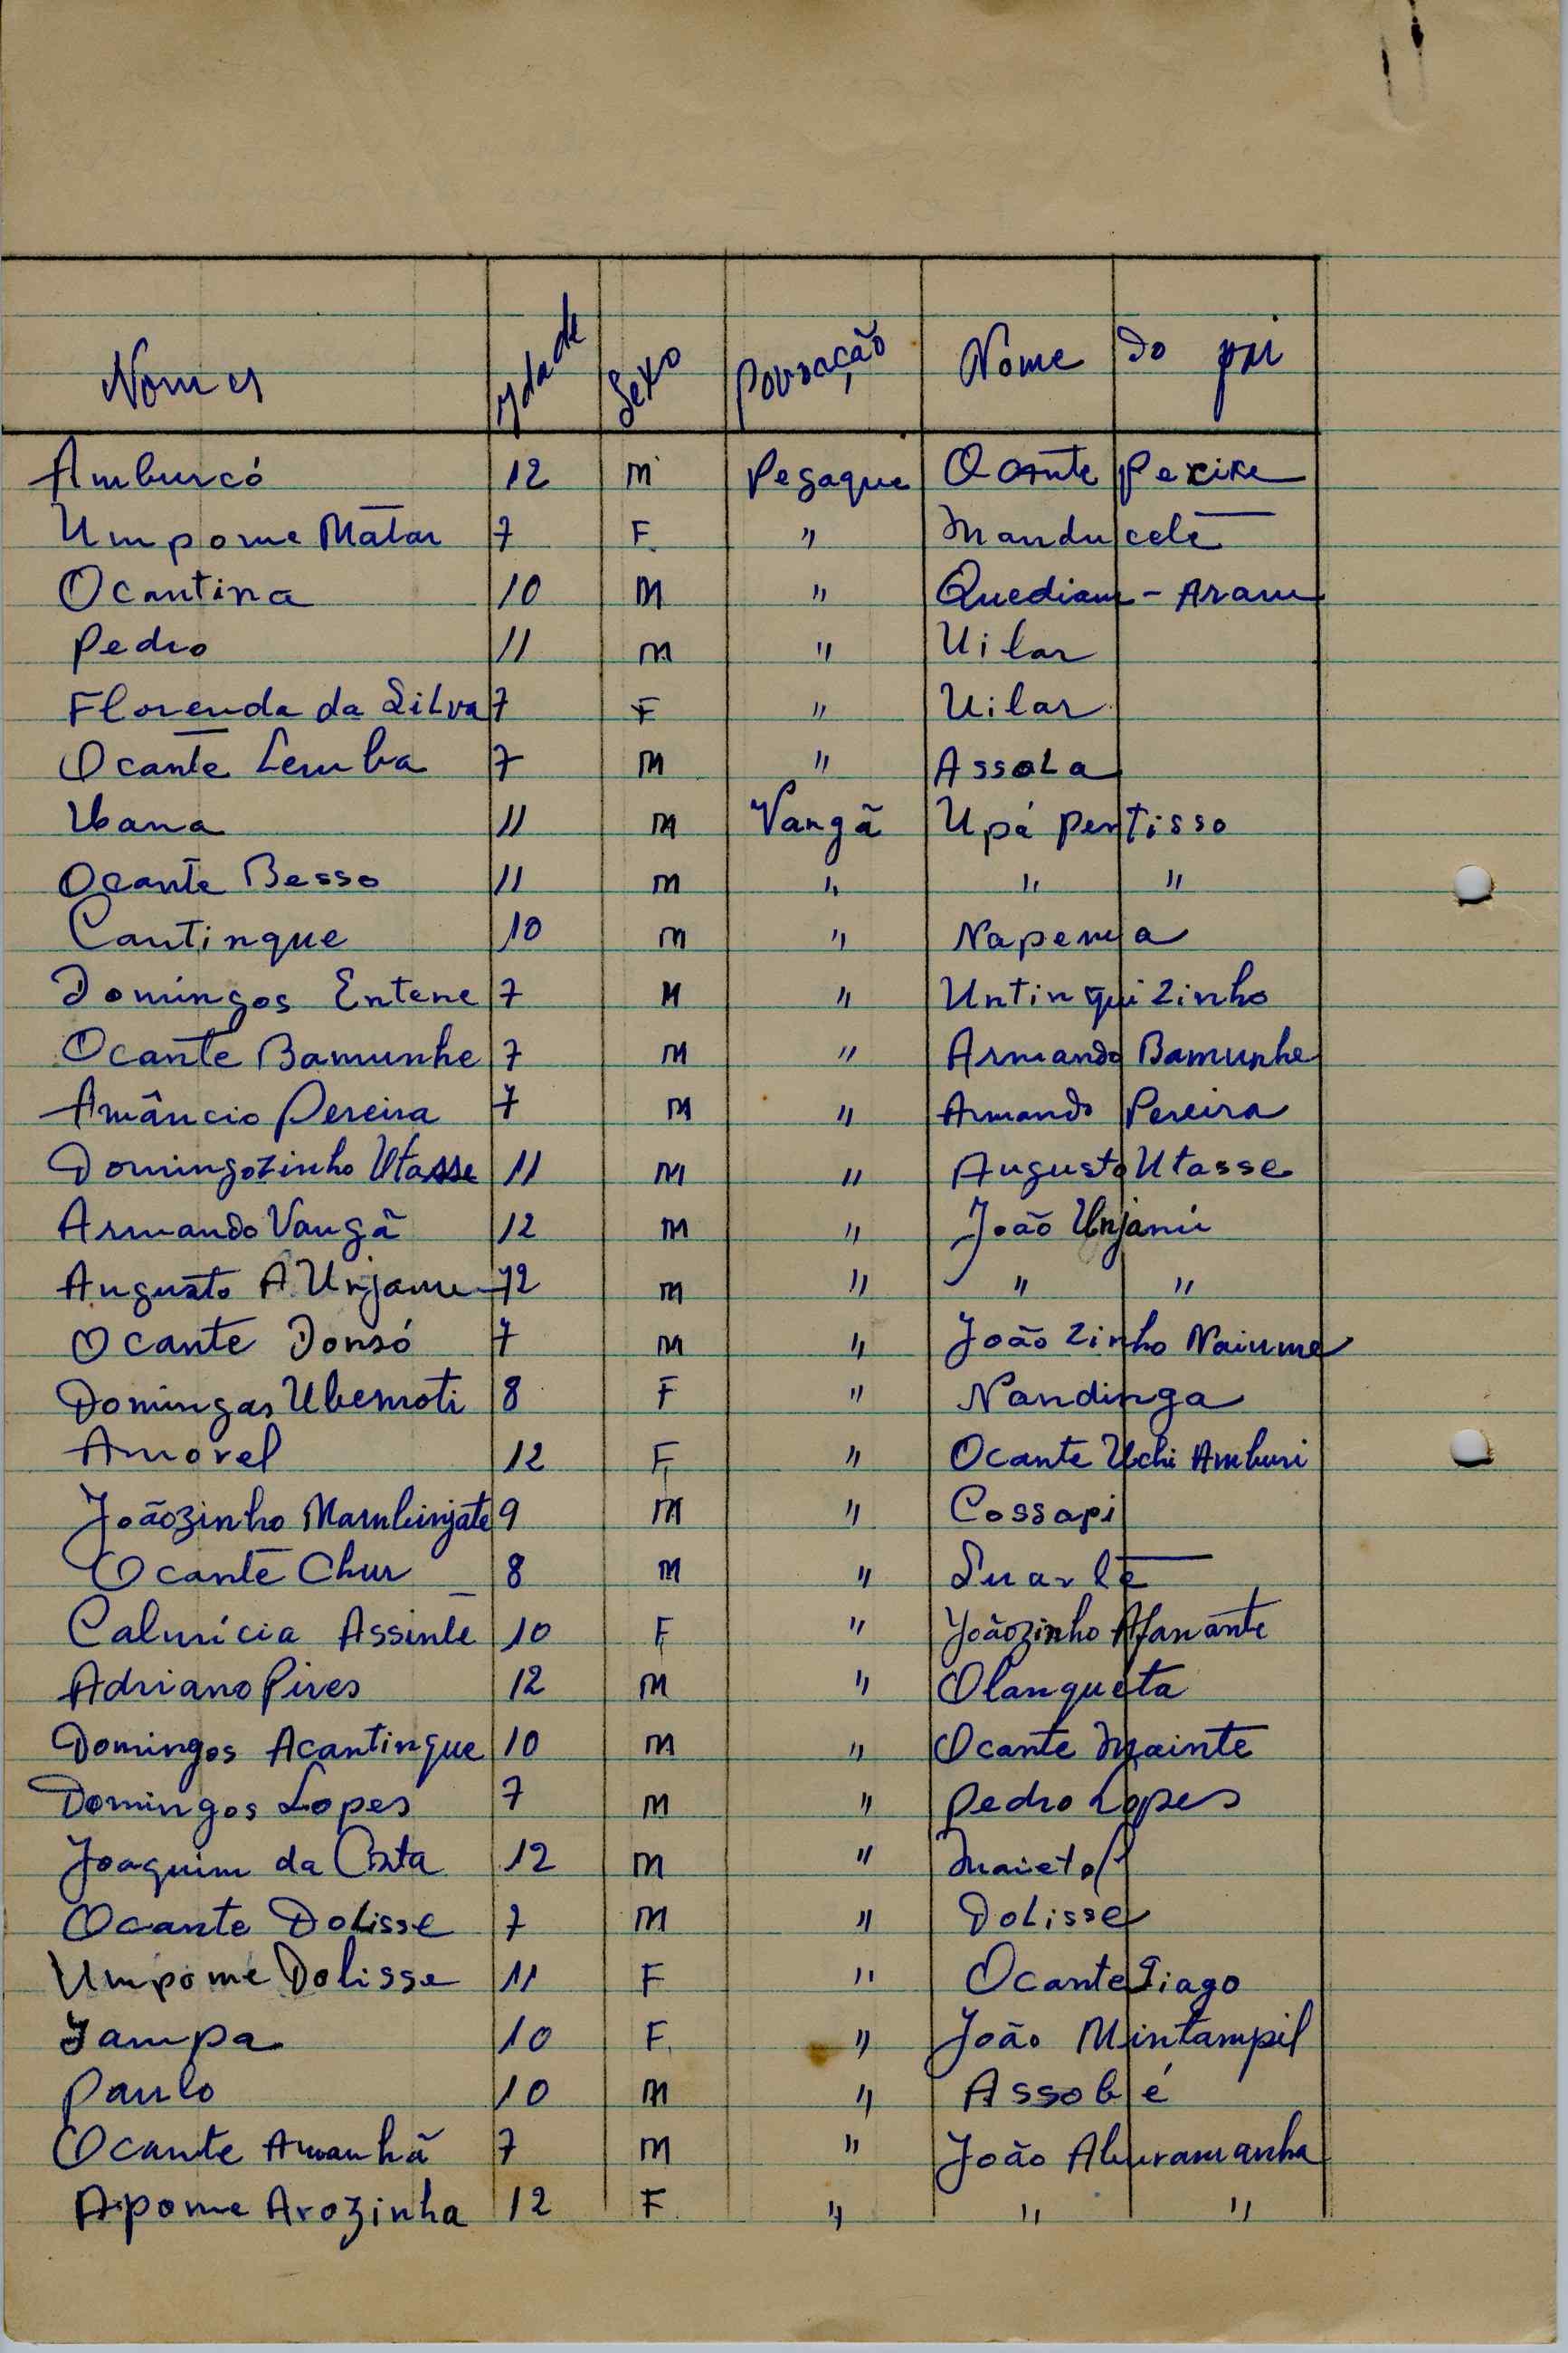 Nomes Ydade Sexo Povoação Nome do pai
Amburcó 12 M Pegaque Ocante Pexixe
Umpome Matar 7 F " Manducete
Ocantina 10 M " Quediam - Aram
Pedro 11 M " Uilar
Florenda da Silva 7 F " Uilar
Ocante Lemba 7 M " Assola
Ubana 11 M Vangã Upá Pentisso
Ocante Besso 11 M " " "
Cantinque 10 M " Napema
Domingos Entene 7 M " Untinquizinho
Ocante Bamunhe 7 M " Armando Bamunhe
Amâncio Pereira 7 M " Armando Pereira
Domingozinho Utasse 11 M " Augusto Utasse
Armando Vangã 12 M " João Unjamú
Augusto A. Unjamu 12 M " " "
Ocante Donsó 7 M " João Zinho Naiume
Domingas Ubemoti 8 F " Nandinga
Amorel 12 F " Ocante Uchi Amburi
Joãozinho Mambinjate 9 M " Cossapi
Ocante Chur 8 M " Duarte
Calurícia Assinte 10 F " Joãozinho Afanante
Adriano Pires 12 M " Olanqueta
Domingos Acantinque 10 M " Ocante Mainte
Domingos Lopes 7 M " Pedro Lopes
Joaquim da Costa 12 M "
Ocante Dolisse 7 M " Dolisse
Umpome Dolisse 11 F " Ocante Tiago
Jampa 10 F " João Mintampil
Paulo 10 M " Assobé
Ocante Amanhã 7 M " João Aburamanha
Apome Arozinha 12 F " " "